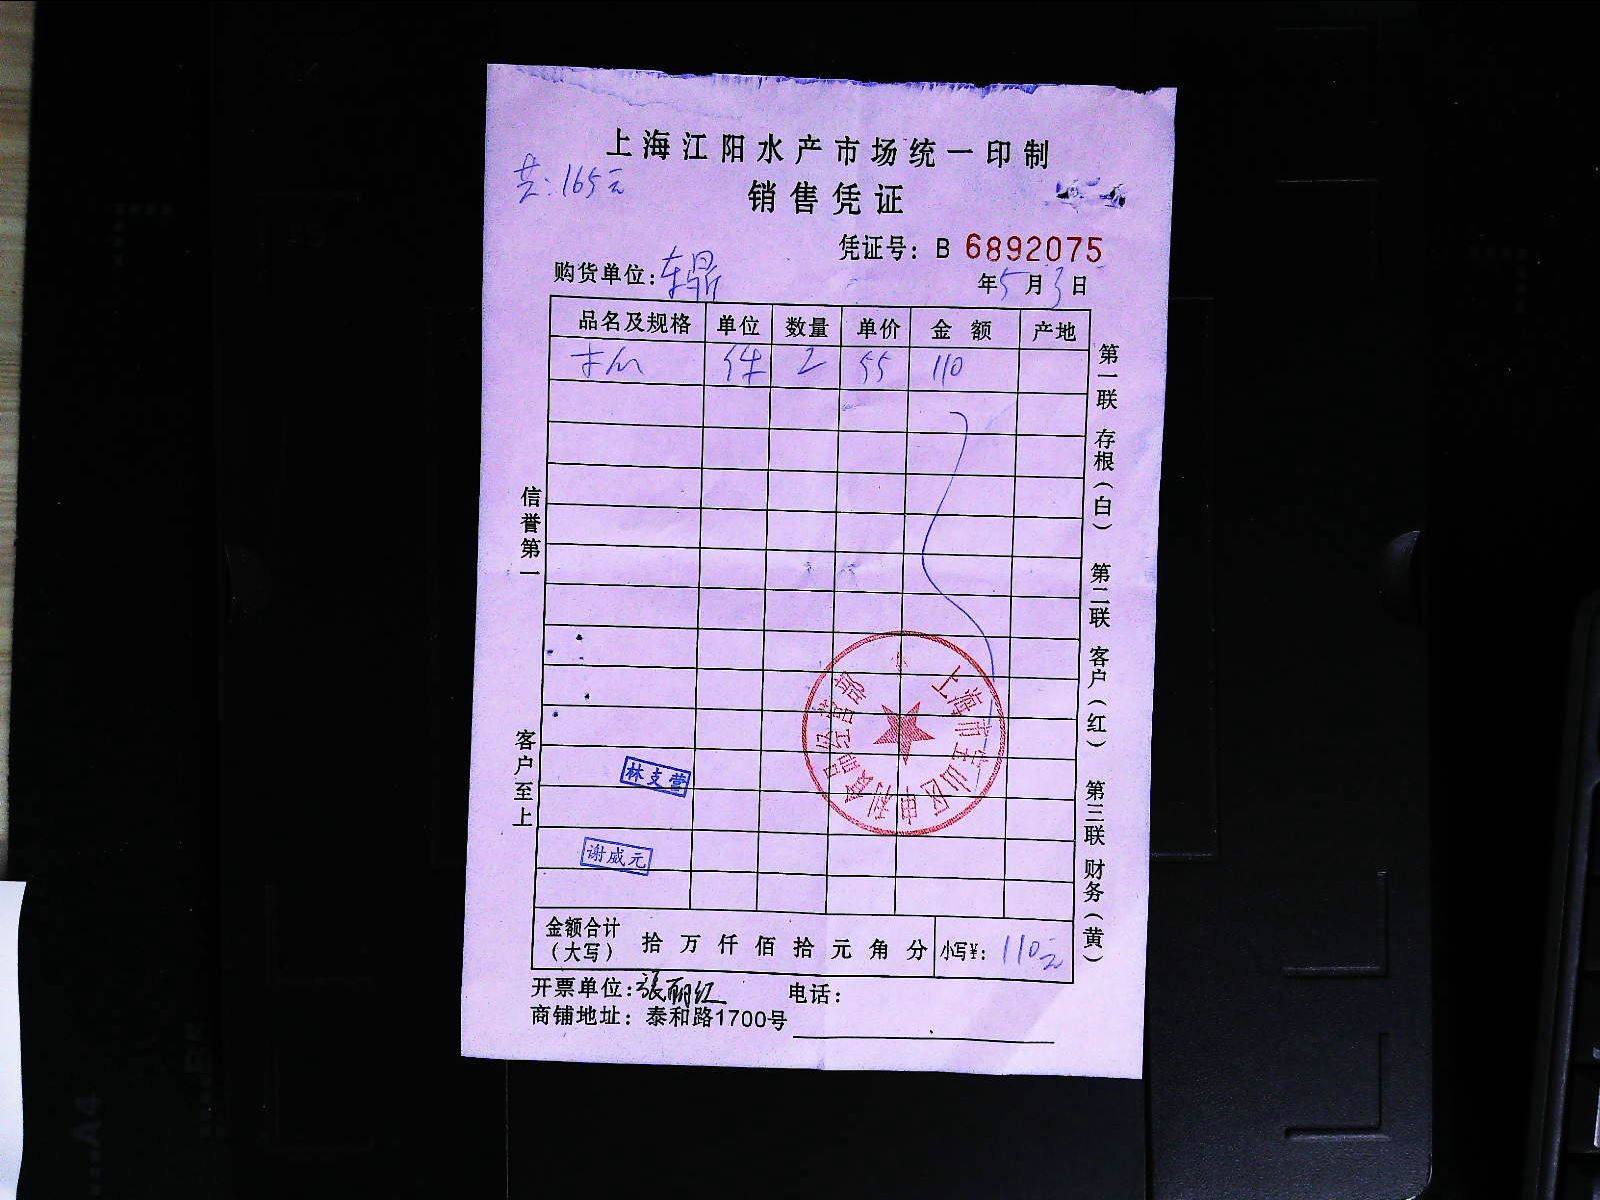 上海江阳水产市场统一印制
共:165元
销售凭证
凭证号: B 6892075
购货单位:东鼎
年5月3日
品名及规格 单位 数量 单价 金额 产地
件 2 55 110
第一联 存根(白) 第二联 客户(红) 第三联 财务(黄)
信誉第一
客户至上
上海市宝山区申利食品经营部
林支营
谢威元
金额合计(大写) 拾 万 仟 佰 拾 元 角 分 小写¥: 110元
开票单位:張丽红 电话:
商铺地址: 泰和路1700号